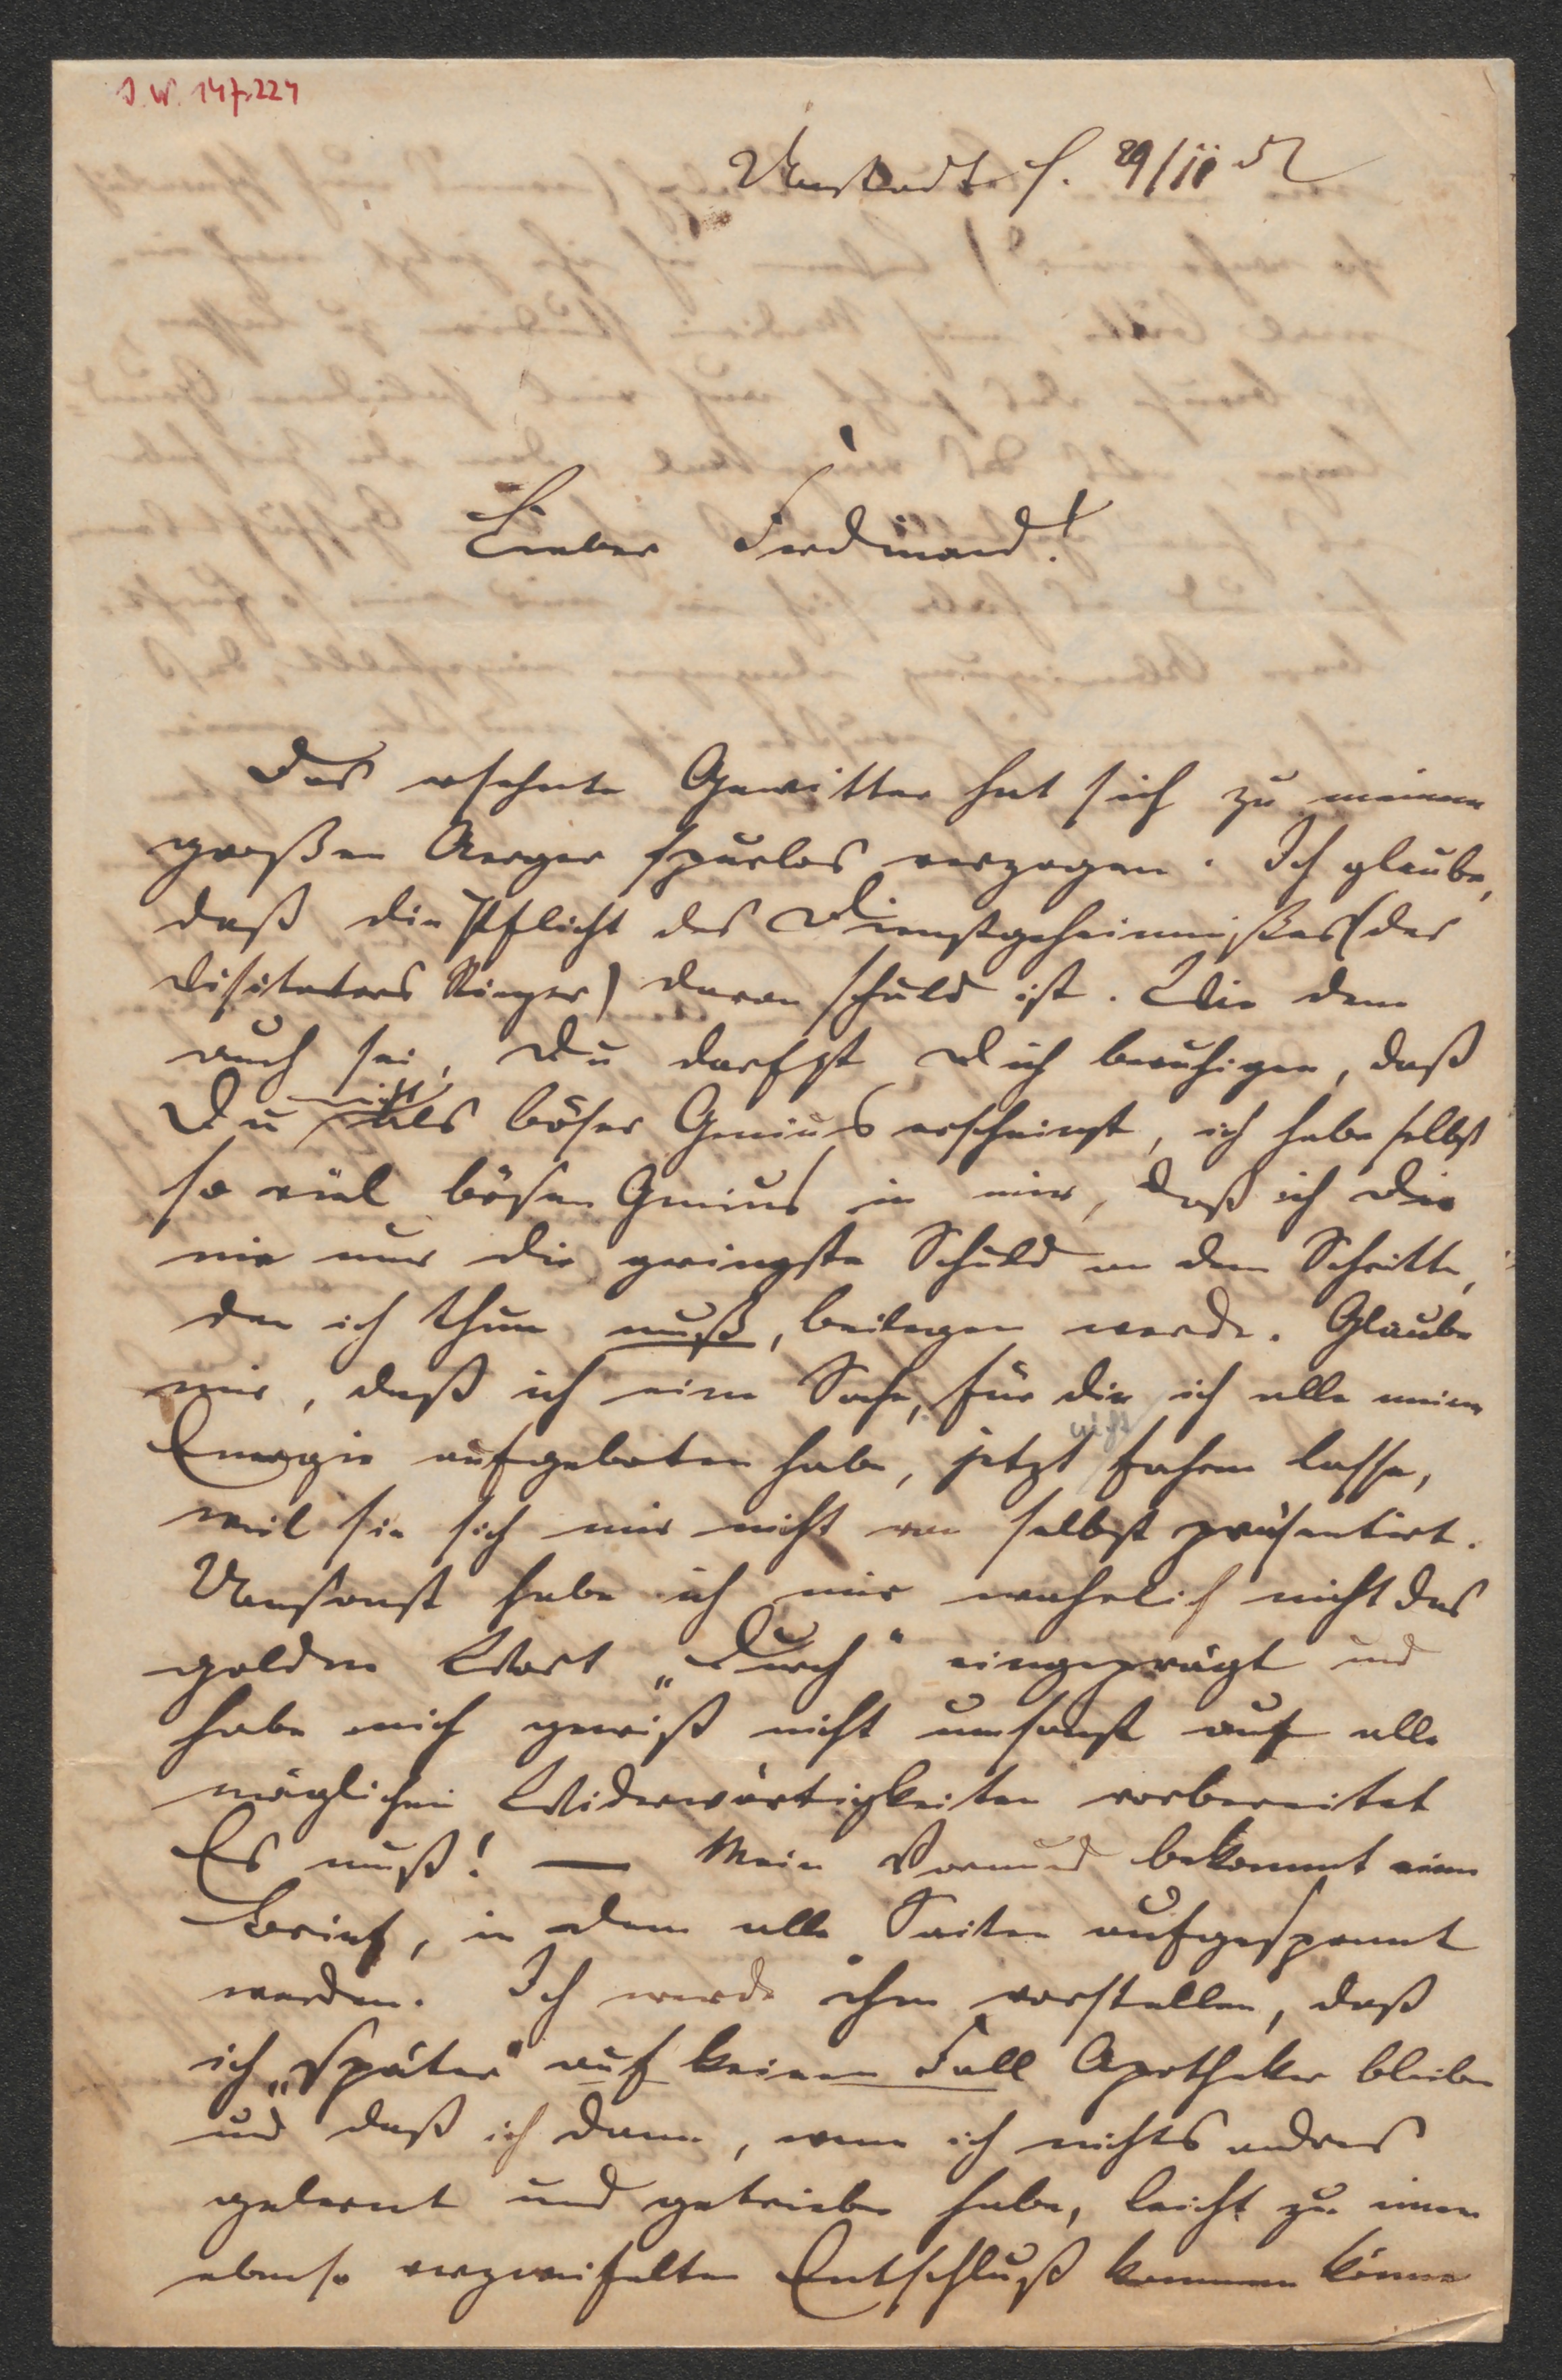 J. W. 147.224
Umstadt d. 29/II 52
Lieber Ferdinand!
Das ersehnte Gewitter hat sich zu meinem
großen Aerger spurlos verzogen. Ich glaube,
daß die Pflicht des Dienstgeheimnißes (des
Visitators Rieger) daran schuld ist. Wie dem
auch sei, Du darfst Dich beruhigen, daß
Du nicht als böser Genius erscheinst, ich habe selbst
so viel bösen Genius in mir, daß ich Dir
nie nur die geringste Schuld an dem Schritte,
den ich thun muß, beilegen werde. Glaube
mir, daß ich eine Sache, für die ich alle meine
Energie aufgeboten habe, jetzt nicht fahren lasse,
weil sie sich mir nicht von selbst präsentirt.
Umsonst habe ich mir wahrlich nicht das
goldne Wort „Durch" eingeprägt und
habe mich gewiß nicht umsonst auf alle
möglichen Widerwärtigkeiten vorbereitet
Es muß! — Mein Vormund bekommt einen
Brief, in dem alle Saiten aufgespannt
werden. Ich werde ihm vorstellen, daß
ich „später" auf keinen Fall Apotheker bleibe
und daß ich dann, wenn ich nichts andres
gelernt und getrieben habe, leicht zu einem
ebenso verzweifelten Entschluß kommen könne